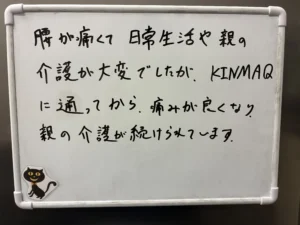 腰が痛くて 日常生活や 親の
介護が大変でしたが、KINMAQ
に通ってから、痛みが良くなり、
親の介護が続けられています。